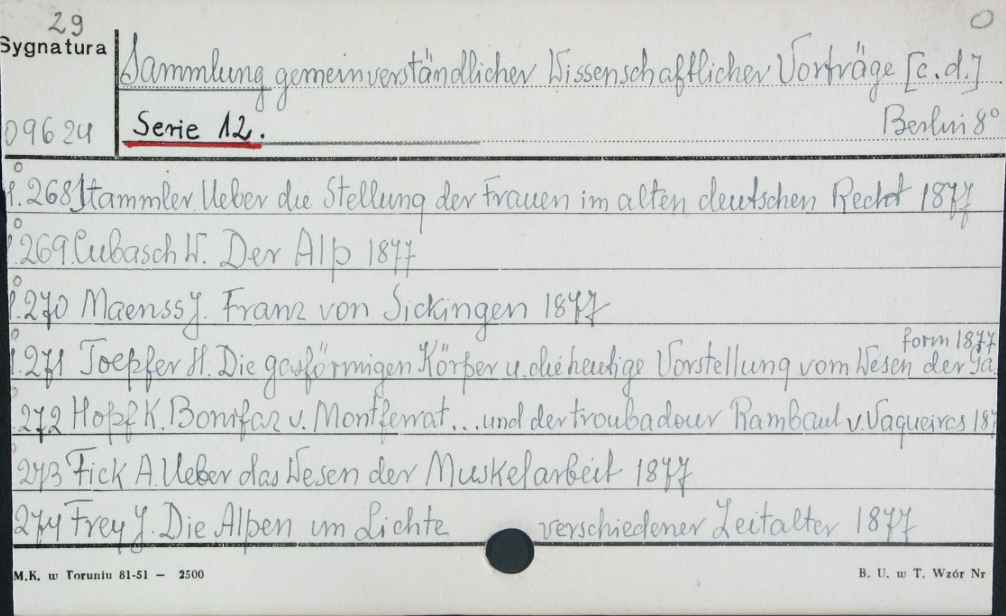 29
Sygnatura
Sammlung gemeinverständlicher Wissenschaftlicher Vorträge [c.d.]
09624
Serie 12.
Berlin 8°
268 Stammler Ueber die Stellung der Frauen im alten deutschen Recht 1877
269. Cubasch W. Der Alp 1877
270 Maenss J. Franz von Sickingen 1877
form 1877
271 Toepfer H. Die gasförmigen Körper u. die heutige Vorstellung vom Wesen der Ga
272 Hopf K. Bonifaz v. Montferrat... und der troubadour Rambaut v. Vaqueiras 187
273 Fick A. Ueber das Wesen der Muskelarbeit 1877
274 Frey J. Die Alpen im Lichte verschiedener Zeitalter 1877
M.K. w Toruniu 81-51 – 2500
B. U. w T. Wzór Nr